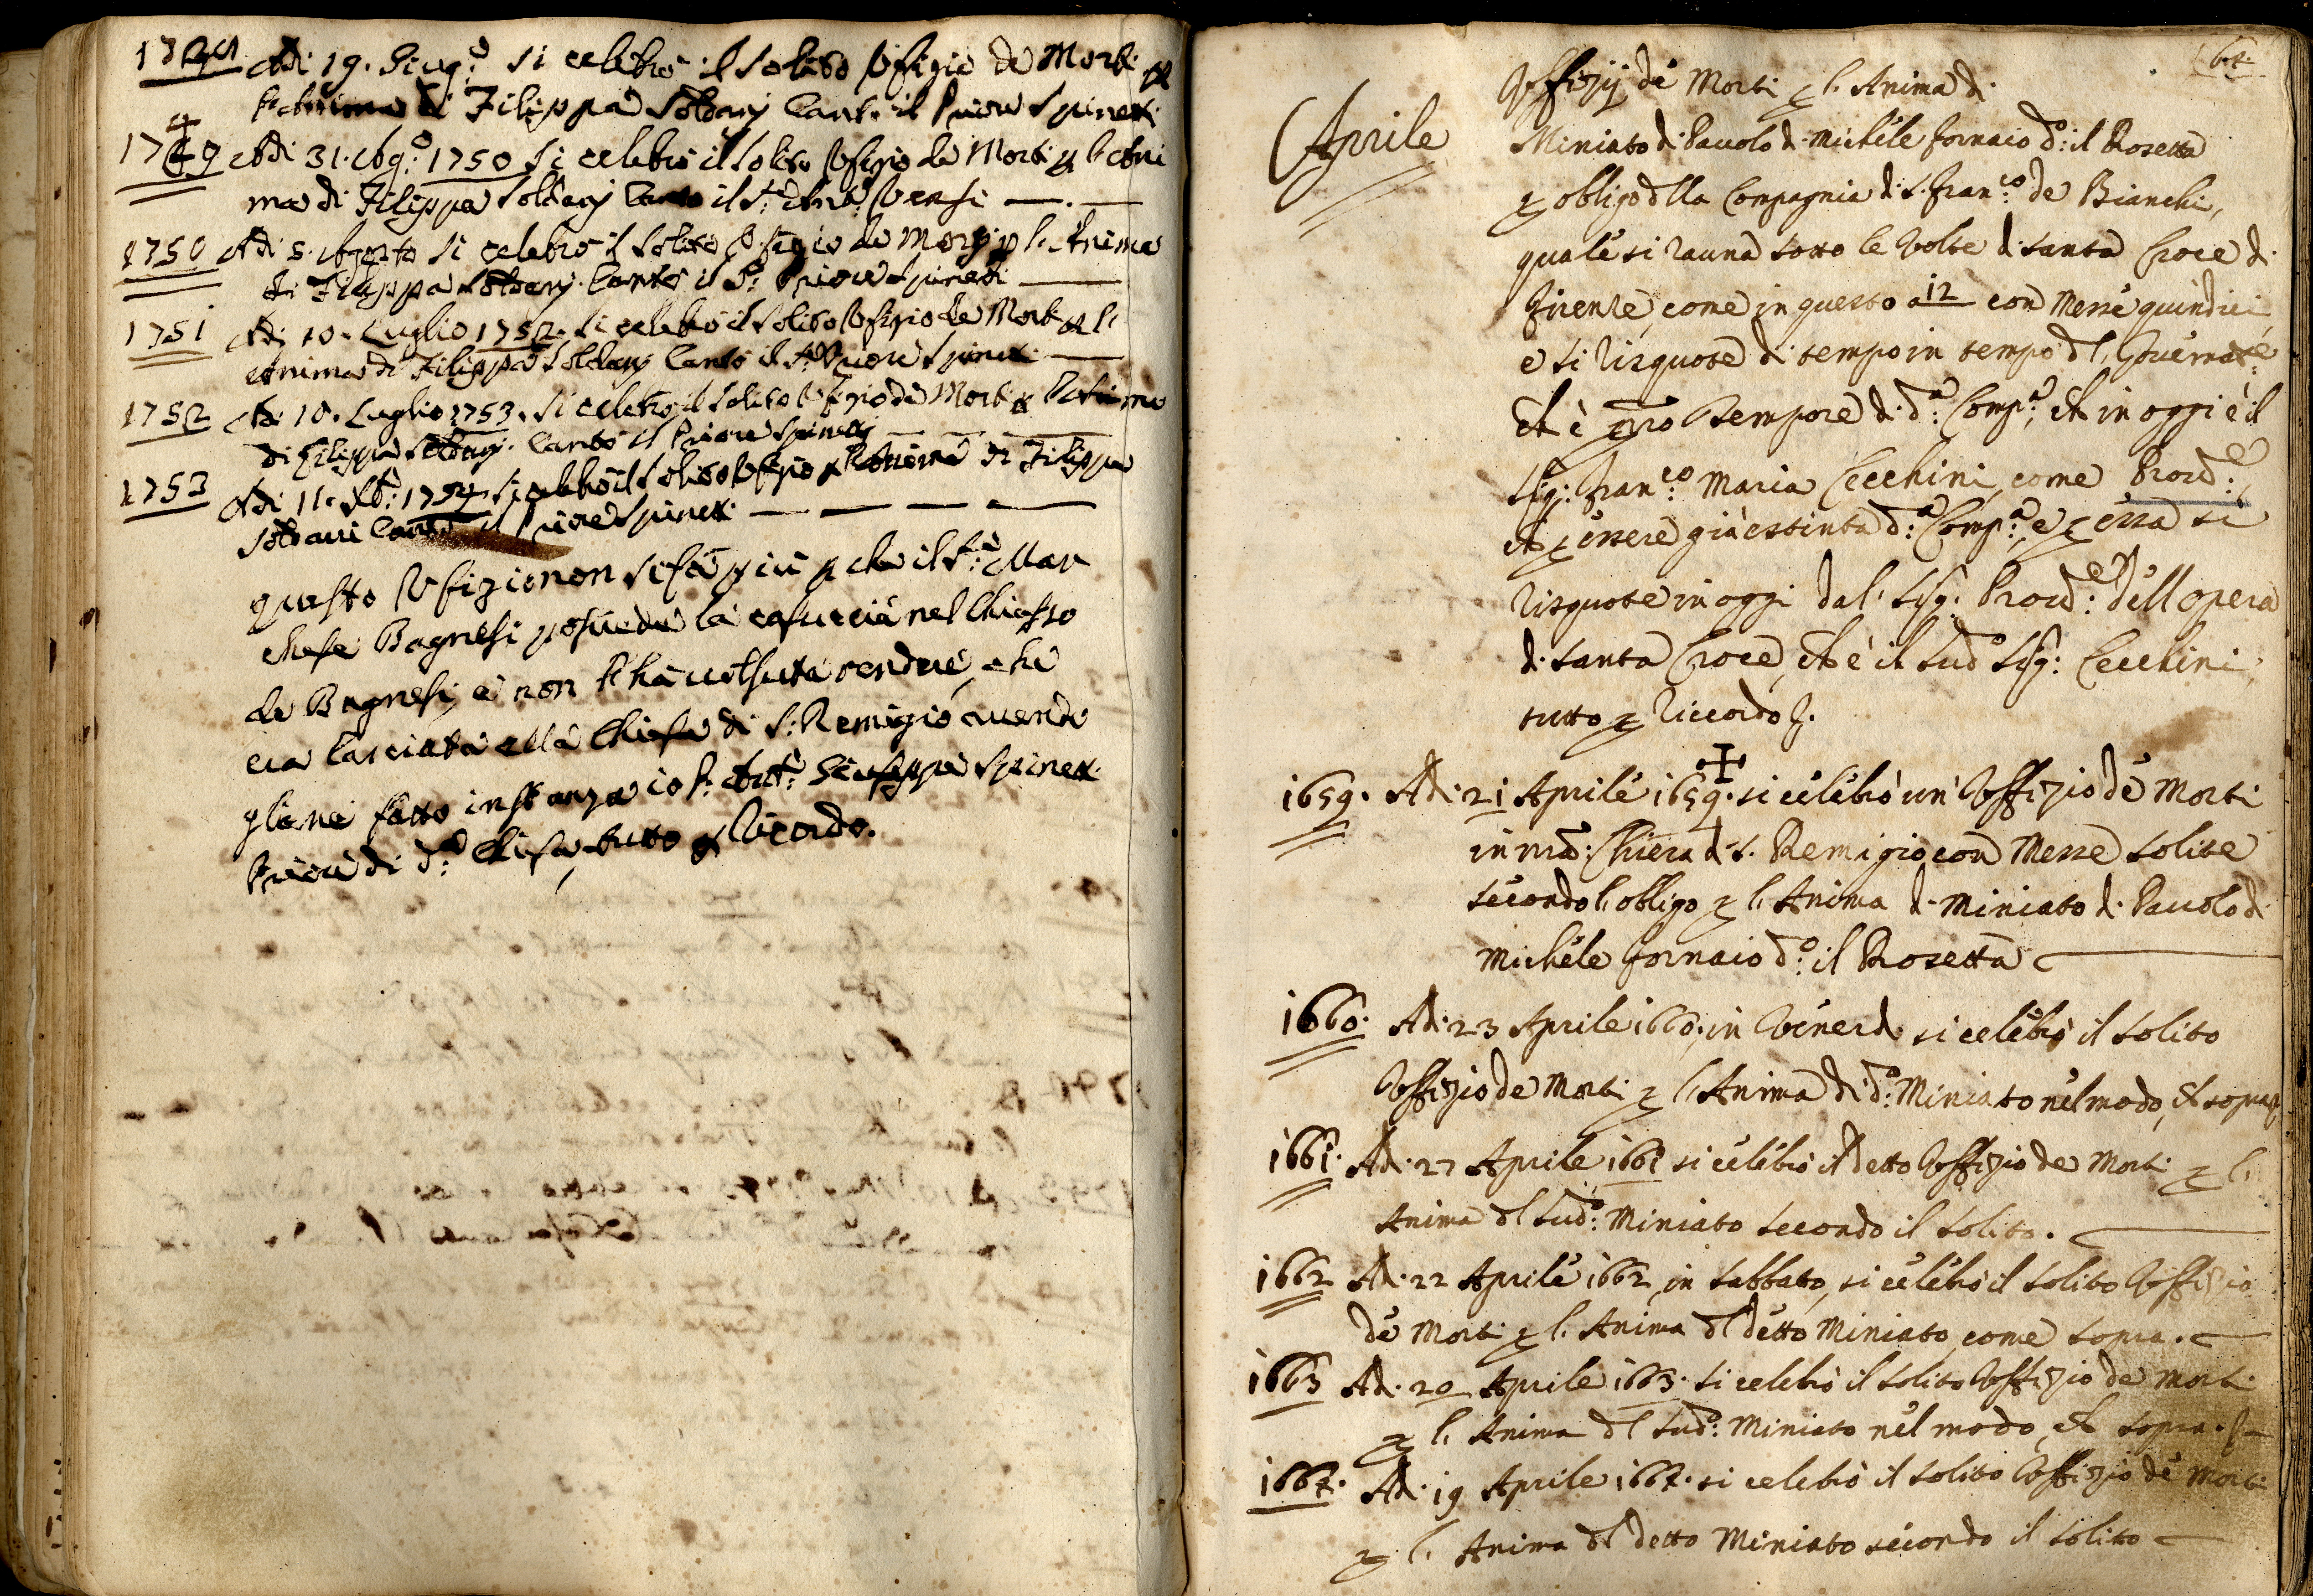 Adi 19. Giug.o si celebrò il solito Ofizio de Morti p
l'Anima di Filippa Soldani Cant. il Priore Spinetti
1749 Adi 31. Ag.o 1750 si celebrò il solito Ofizio de Morti p l'Ani
ma di Filippa Soldani Cantò il S.r
1750 Adi 5. Agosto si celebrò il solito Ofizio de Morti p l'Anima
di Filippa Soldani. Cantò il S.r Priore Spinetti
1751 Adi 10. Luglio 1752. si celebrò il solito Ofizio de Morti p l'
Anima di Filippa Soldani Cantò il S.r Priore Spinetti
1752 Adi 10. Luglio 1753. si celebrò il solito Ofizio de Morti p l'Anima
di Filippa Soldani. Cantò il Priore Spinetti
1753 Adi 11. 1754. si celebrò il solito Ofizio p l'Anima di Filippa
Soldani Cantò il Priore Spinetti
questo Ofizio non si fà più p che il S.r Mar
chese Bagnesi possiede la casuccia nel Chiasso
de Bagnesi, e non l'hà volsuta rendere, che
era lasciata alla Chiesa di S. Remigio avendo
gliene fatto instanza io P. Ant.o Giuseppe Spinetti
Priore di d.a Chiesa, tutto p Ricordo.
64.
Aprile
Offizij de Morti p l'Anima di
Miniato di Pauolo di Michele fornaio d.o il Rosetta
p obligo della Compagnia di S. Fran.co de Bianchi,
quale si rauna sotto le Volte di Santa Croce di
Firenze, come in questo a 12 con Messe quindici
e si risquote di tempo in tempo dl' Gouernat.e
et è pro tempore di d.a Comp.a, et in oggi è il
Sig. Fran.co Maria Cecchini, come Prou.e
et p essere già estinta d.a Comp.a, e p essa si
risquote in oggi dal' Sig. Prou.e dell'Opera
di Santa Croce, et è il sud.o Sig: Cecchini,
tutto p Riccordo.
1659. Ad. 21 Aprile 1659. si celebrò un' Offizio de Morti
in nra Chiesa di S. Remigio con Messe solite
secondo l'obligo p l'Anima di Miniato di Pauolo di
Michele fornaio d.o il Rosetta
1660. Ad. 23 Aprile 1660. in Venerdi si celebrò il solito
Offizio de Morti p l'Anima di d.o Miniato nel modo, et sopra
1661. Ad. 27 Aprile 1661 si celebrò il detto Offizio de Morti p l'
Anima dl sud.o Miniato secondo il solito.
1662 Ad. 22 Aprile 1662, in sabbato, si celebrò il solito Offizio
de Morti p l'Anima dl detto Miniato, come sopra.
1663 Ad. 20 Aprile 1663. si celebrò il solito Offizio de Morti
p l'Anima dl sud.o Miniato nel modo, et sopra.
Ad. 19 Aprile si celebrò il solito Offizio de Morti
p l'Anima dl detto Miniato secondo il solito